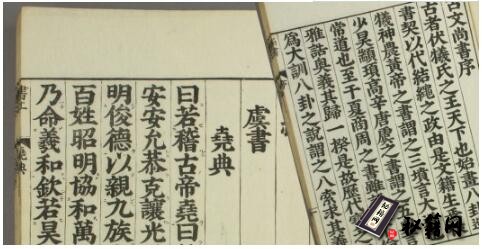 古文尚書序
古者伏犧氏之王天下也始畫八卦
書契以代結繩之政由是文籍生
犧神農黃帝之書謂之三墳言大
少昊顓頊高辛唐虞之書
常道也至于夏商周之書雖
雅誥奧義其歸一揆是故歷代
為大訓八卦之說謂之八索求其
虞書
堯典
曰若稽古帝堯曰
安安允恭克讓光
明俊德以親九族
百姓昭明協和萬
乃命羲和欽若昊
堯典
秘籍网